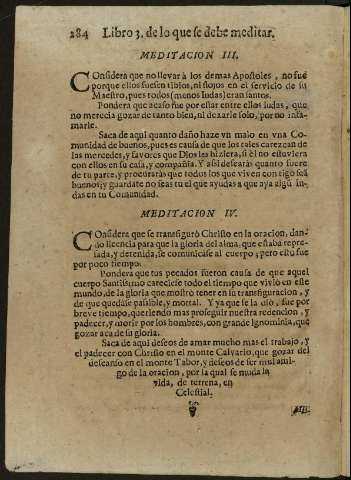 284 Libro 3. de lo que se debe meditar.
MEDITACION III.
COnsidera que no llevar à los demas Apostoles, no fuè
porque ellos fuesen tibios, ni flojos en el servicio de su
Maestro, pues todos (menos Iudas) eran santos.
Pondera que acaso fue por estar entre ellos Iudas, que
no merecia gozar de tanto bien, ni dezirle solo, por no infa-
marle.
Saca de aqui quanto daño haze vn malo en vna Co-
munidad de buenos, pues es causa de que los tales carezcan de
las mercedes, y favores que Dios les hiziera, si èl no estuviera
con ellos en su casa, y compañia. Y asi desearàs quanto fuere
de tu parte, y procuraràs que todos los que viven contigo seã
buenos; y guardate no seas tu el que ayudas a que aya algũ Iu-
das en tu Comunidad.
MEDITACION IV.
COnsidera que se transfigurò Christo en la oracion, dan-
do licencia para que la gloria del alma, que estaba repre-
sada, y detenida, se comunicase al cuerpo; pero esto fue
por poco tiempo.
Pondera que tus pecados fueron causa de que aquel
cuerpo Santissimo careciese todo el tiempo que viviò en este
mundo, de la gloria que mostrò tener en su transfiguracion, y
de que quedase pasible, y mortal. Y ya que se la diò, fue por
breve tiempo, queriendo mas proseguir nuestra redencion, y
padecer, y morir por los hombres, con grande Ignominia, que
gozar aca de su gloria.
Saca de aqui deseos de amar mucho mas el trabajo, y
el padecer con Christo en el monte Calvario, que gozar del
descanso en el monte Tabor, y deseos de ser mui ami-
go de la oracion, por la qual se muda la
vida, de terrena, en
Celestial.